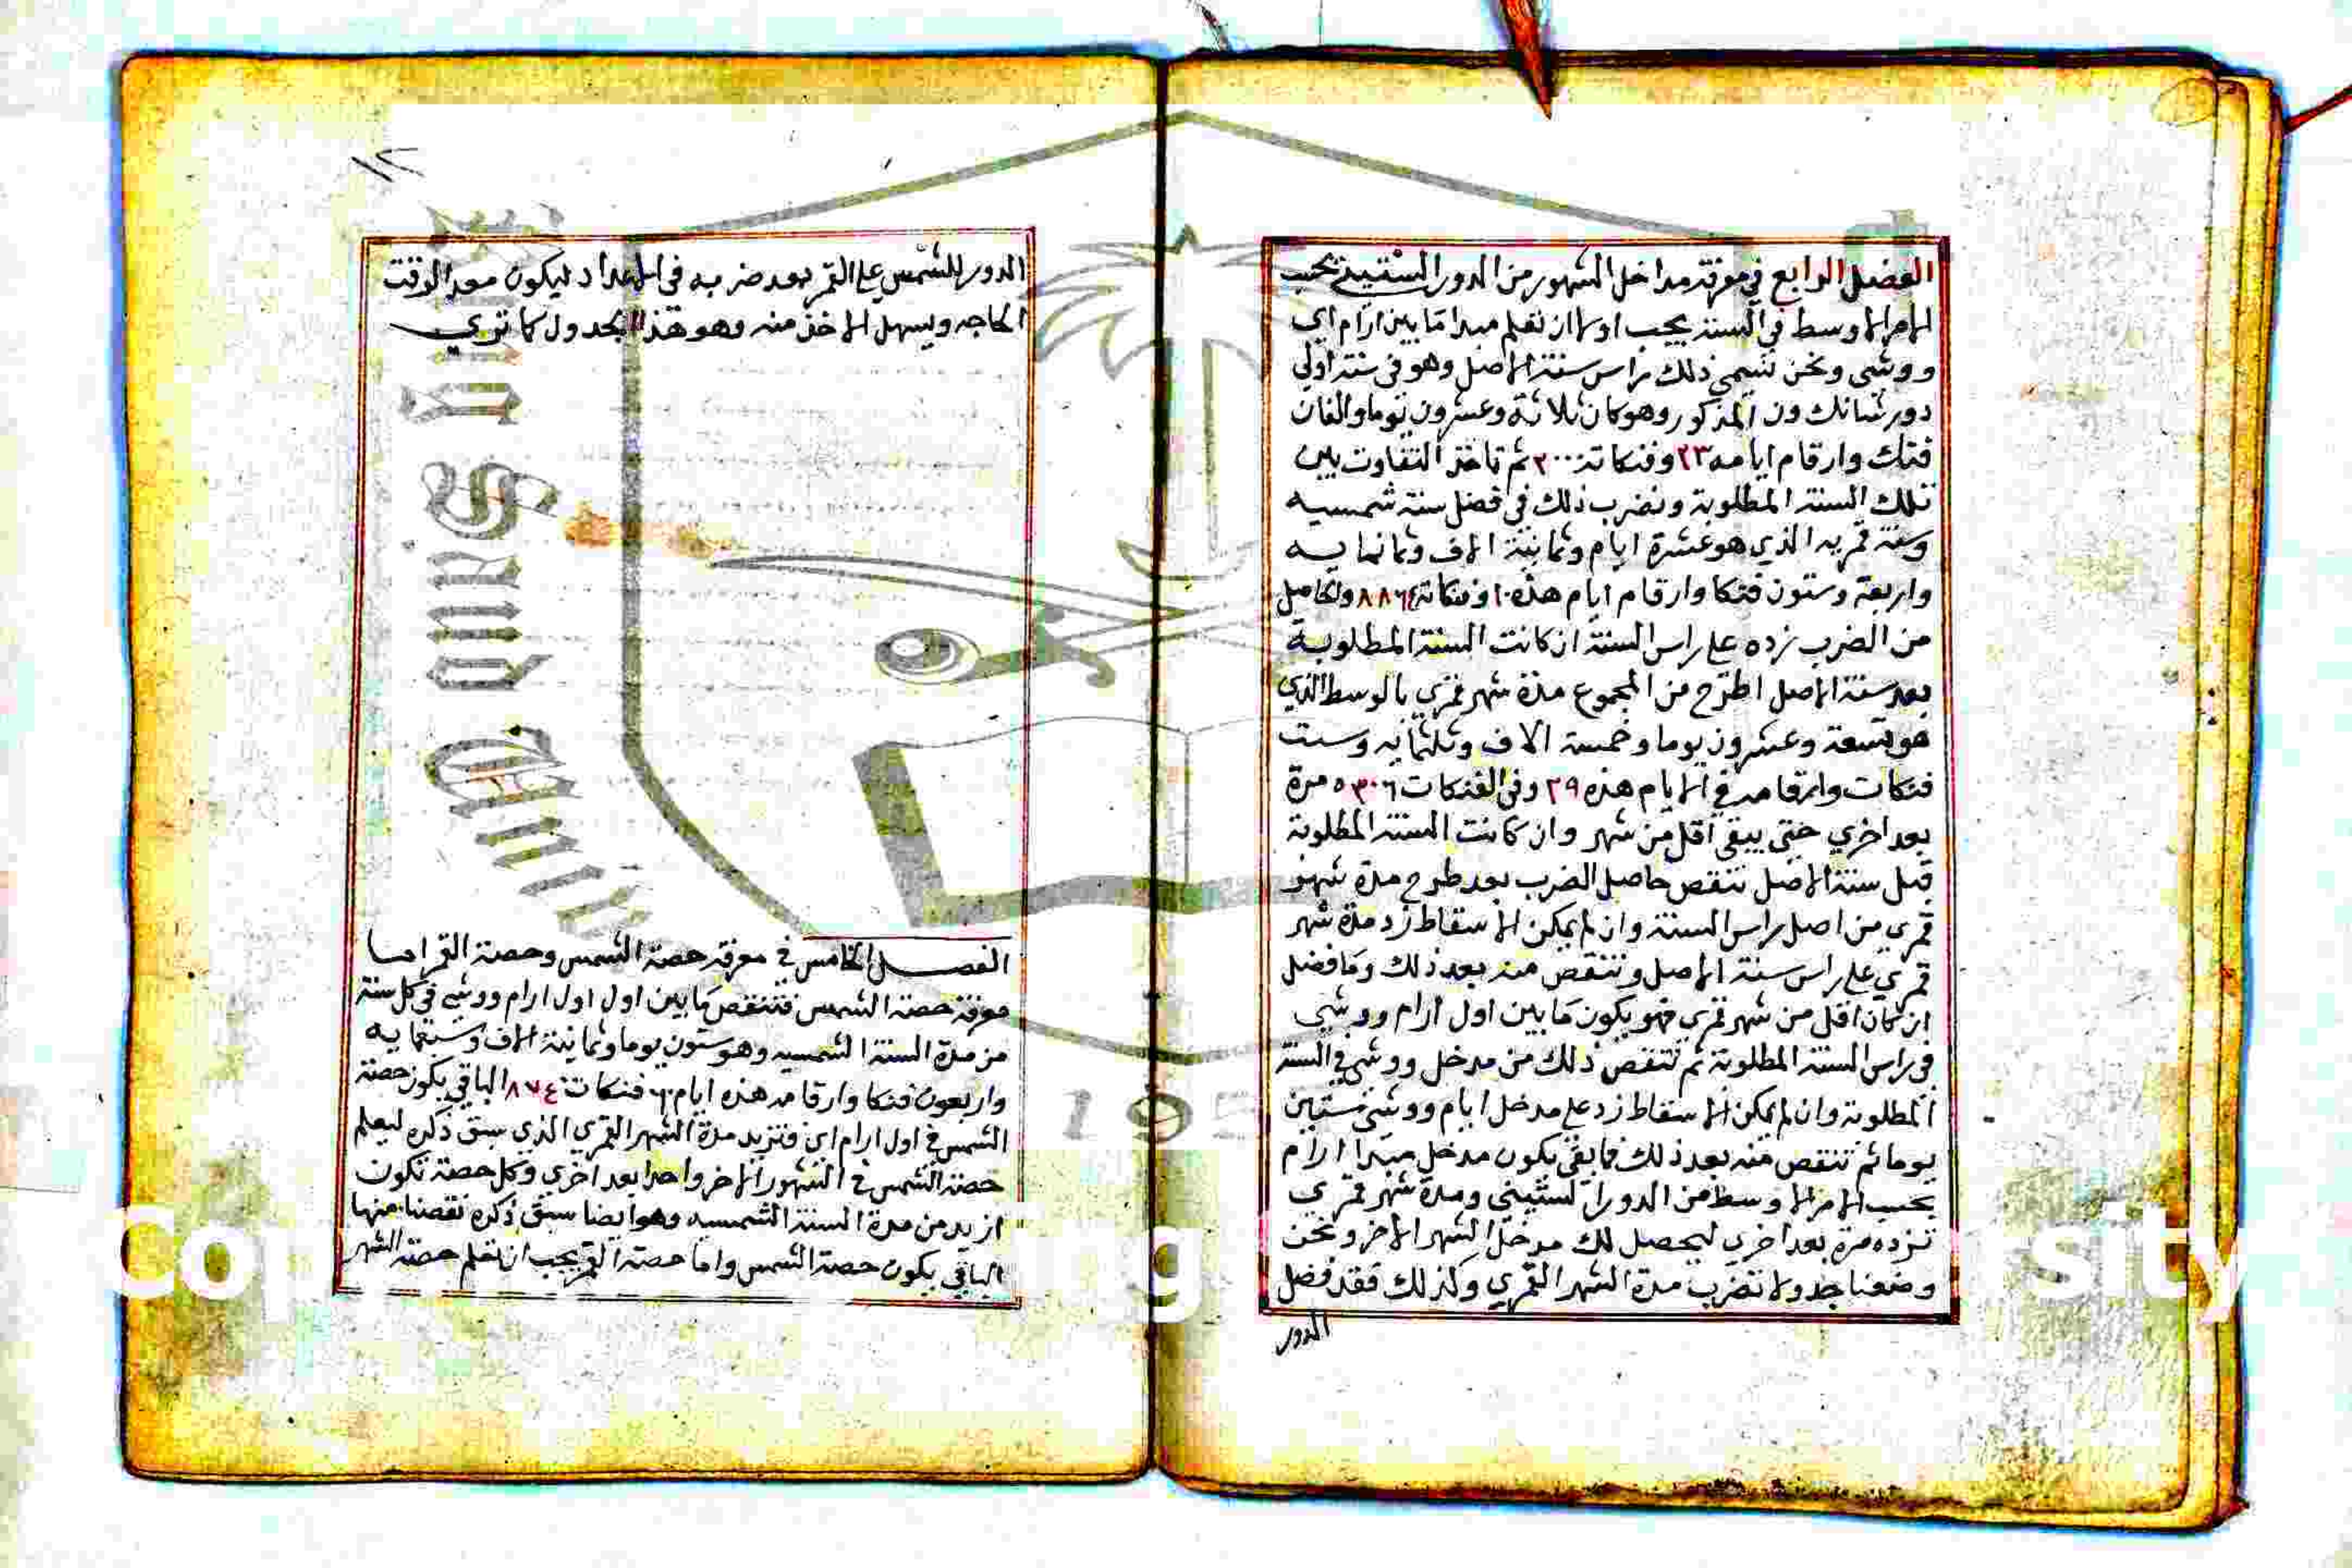 الفصل الرابع في معرفة مداخل الشهور من الدور الستيني بحسب
الامر الاوسط في السنة يجب اولا ان نعلم مبدا ما بين ارام اي
ووشي ونحن نسمي ذلك براس سنة الاصل وهو في سنة اولي
دور شانك ون المذكور وهو كان ثلاثة وعشرون يوما والفان
فنك وارقام ايامه ٢٣ وفنكاته ٢٠٠٠ ثم تاخذ التفاوت بين
تلك السنة المطلوبة ونضرب ذلك في فضل سنة شمسيه
وسنة قمريه الذي هو عشرة ايام وثمانية الاف وثمانمايه
واربعة وستون فنكا وارقام ايام هذه ١٠ وفنكاته ٨٨٦٤ والحاصل
من الضرب زده علي راس السنة ان كانت السنة المطلوبة
بعد سنة الاصل اطرح من المجموع مدة شهر قمري بالوسط الذي
هو تسعة وعشرون يوما وخمسة الاف وثلثمايه وست
فنكات وارقامه في الايام هذه ٢٩ وفي الفنكات ٥٣٠٦ مرة
بعد اخري حتي يبقي اقل من شهر وان كانت السنة المطلوبة
قبل سنة الاصل ننقص حاصل الضرب بعد طرح مدة شهر
قمري من اصل راس السنة وان لم يمكن الاسقاط زد مدة شهر
قمري علي راس سنة الاصل وننقص منه بعد ذلك وما فضل
ان كان اقل من شهر قمري فهو يكون ما بين اول ارام ووشي
في راس السنة المطلوبة ثم ننقص ذلك من مدخل ووشي في السنة
المطلوبة وان لم يمكن الاسقاط زد علي مدخل ايام ووشي ستين
يوما ثم ننقص منه بعد ذلك فما بقي يكون مدخل مبدا ارام
بحسب الامر الاوسط من الدور الستيني ومدة شهر قمري
نزده مرة بعد اخري ليحصل لك مدخل الشهر الاخر ونحن
وضعنا جدولا نضرب مدة الشهر القمري وكذلك فقد فضل
الدور
١٢
الدور للشمس علي القمر بعد ضربه في الاعداد ليكون معد الوقت
الحاجه ويسهل الاخذ منه وهو هذا الجدول كما تري
الفصل الخامس في معرفة حصة الشمس وحصة القمر اما
معرفة حصة الشمس فتنقص ما بين اول اول ارام ووشي في كل سنة
من مدة السنة الشمسيه وهو ستون يوما وثمانية الاف وسبعمايه
واربعون فنكا وارقامه هذه ايام ٦٠ فنكاته ٨٧٤ الباقي يكون حصة
الشمس في اول ارام اي فتزيد مدة الشهر القمري الذي سبق ذكره ليعلم
حصة الشمس في الشهور الاخر واحدا بعد اخري وكل حصة تكون
ازيد من مدة السنة الشمسيه وهو ايضا سبق ذكره نقصنا منها
الباقي يكون حصة الشمس واما حصة القمر يجب ان نعلم حصة الشهر